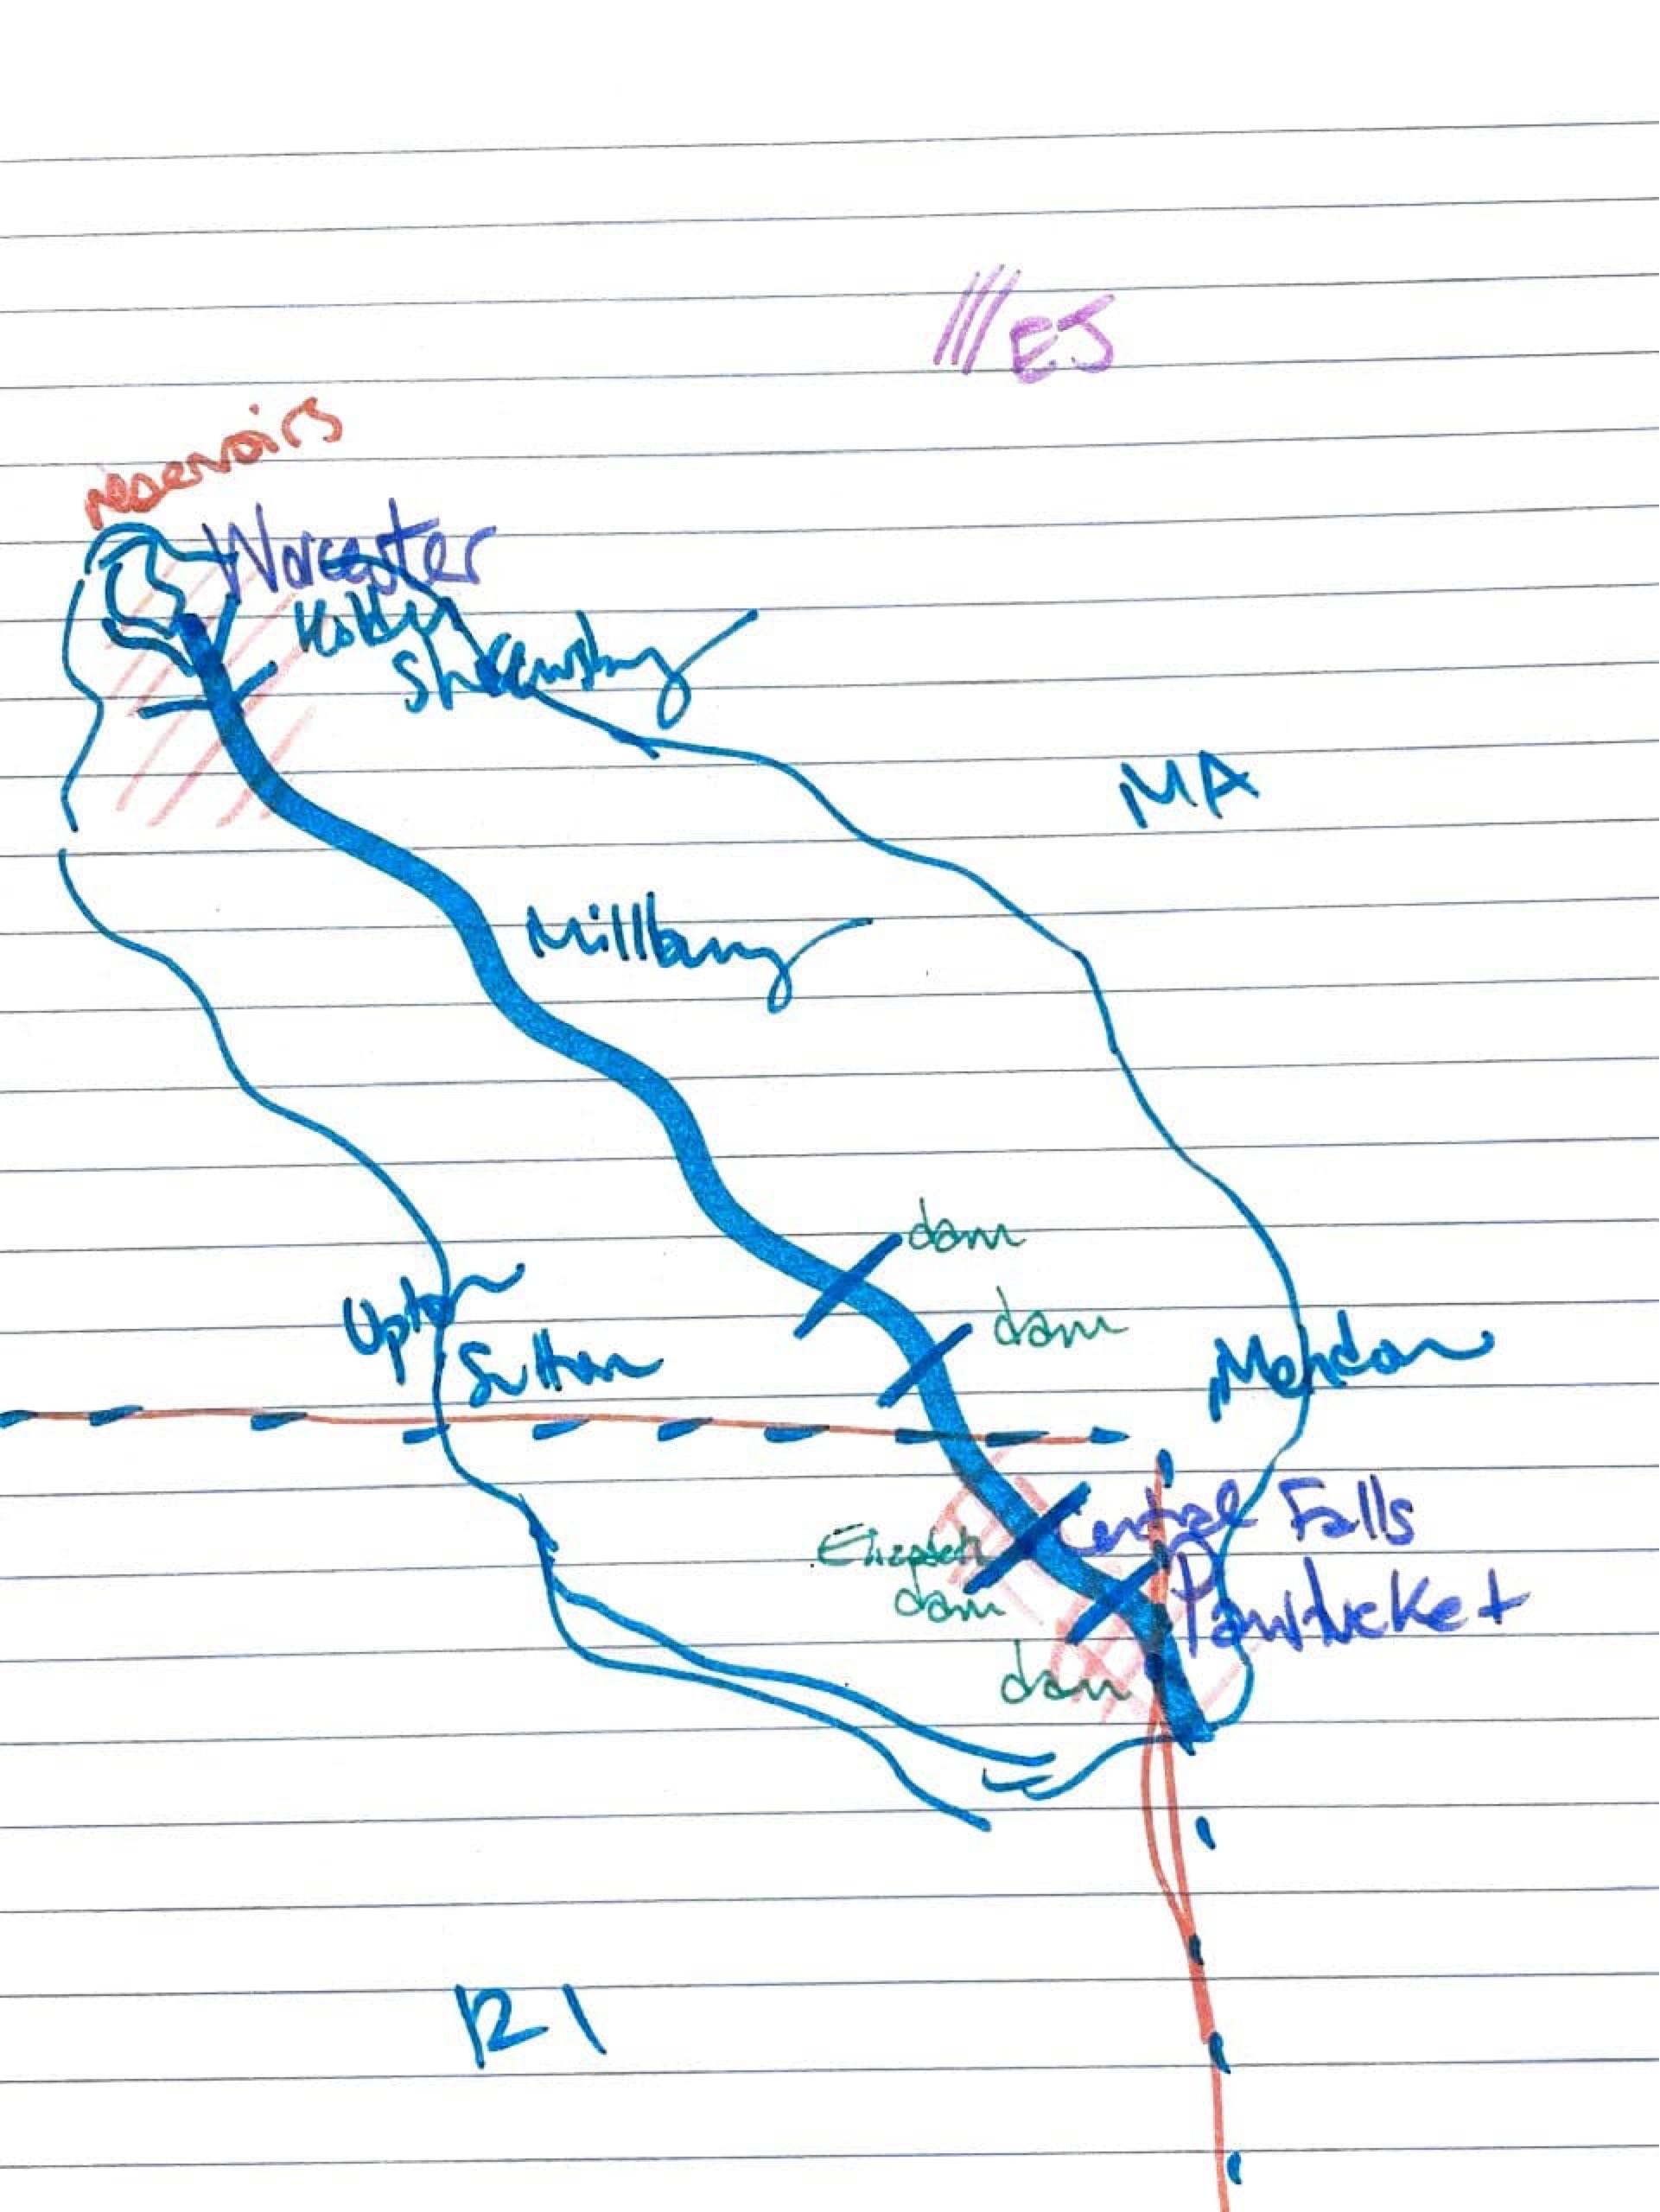 EJ
reservoirs
Worcester
Holden
Shrewsbury
MA
Millbury
dam
dam
Upton
Sutton
Mendon
Central Falls
Elizabeth
dam
Pawtucket
dam
RI